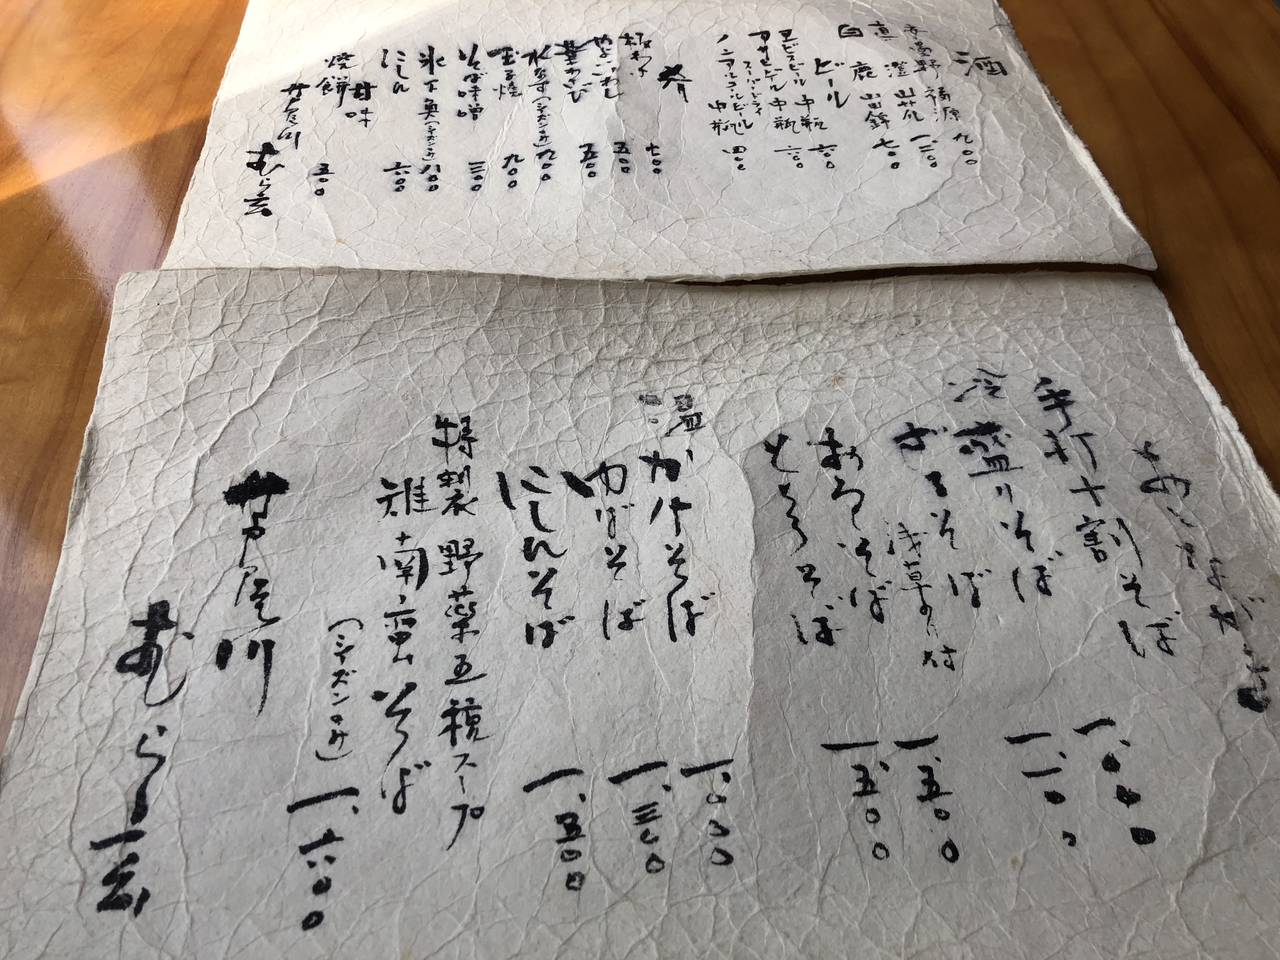 酒
安曇野 福源 九〇〇
澄 山花 一、二〇〇
真
白鹿 山田錦 七〇〇
ビール
ヱビスビール 中瓶 六〇〇
アサヒビール スーパードライ 中瓶 六〇〇
ノンアルコールビール 中瓶 四〇〇
肴
板わさ 七〇〇
五〇〇
茎わさび 五〇〇
水なす(シーズンのみ) 九〇〇
玉子焼 九〇〇
そば味噌 三〇〇
氷下魚(シーズンのみ) 八〇〇
にしん 六〇〇
甘味
焼餅 五〇〇
芦屋川
むら玄
おしながき
手打十割そば 一、〇〇〇
冷 盛りそば 一、一〇〇
ざるそば 浅草のり付 一、五〇〇
おろしそば 一、五〇〇
とろろそば
温 かけそば 一、〇〇〇
ゆばそば 一、三〇〇
にしんそば 一、五〇〇
特製 野菜五種スープ
雉南蛮そば
(シーズンのみ) 一、六〇〇
芦屋川
むら玄